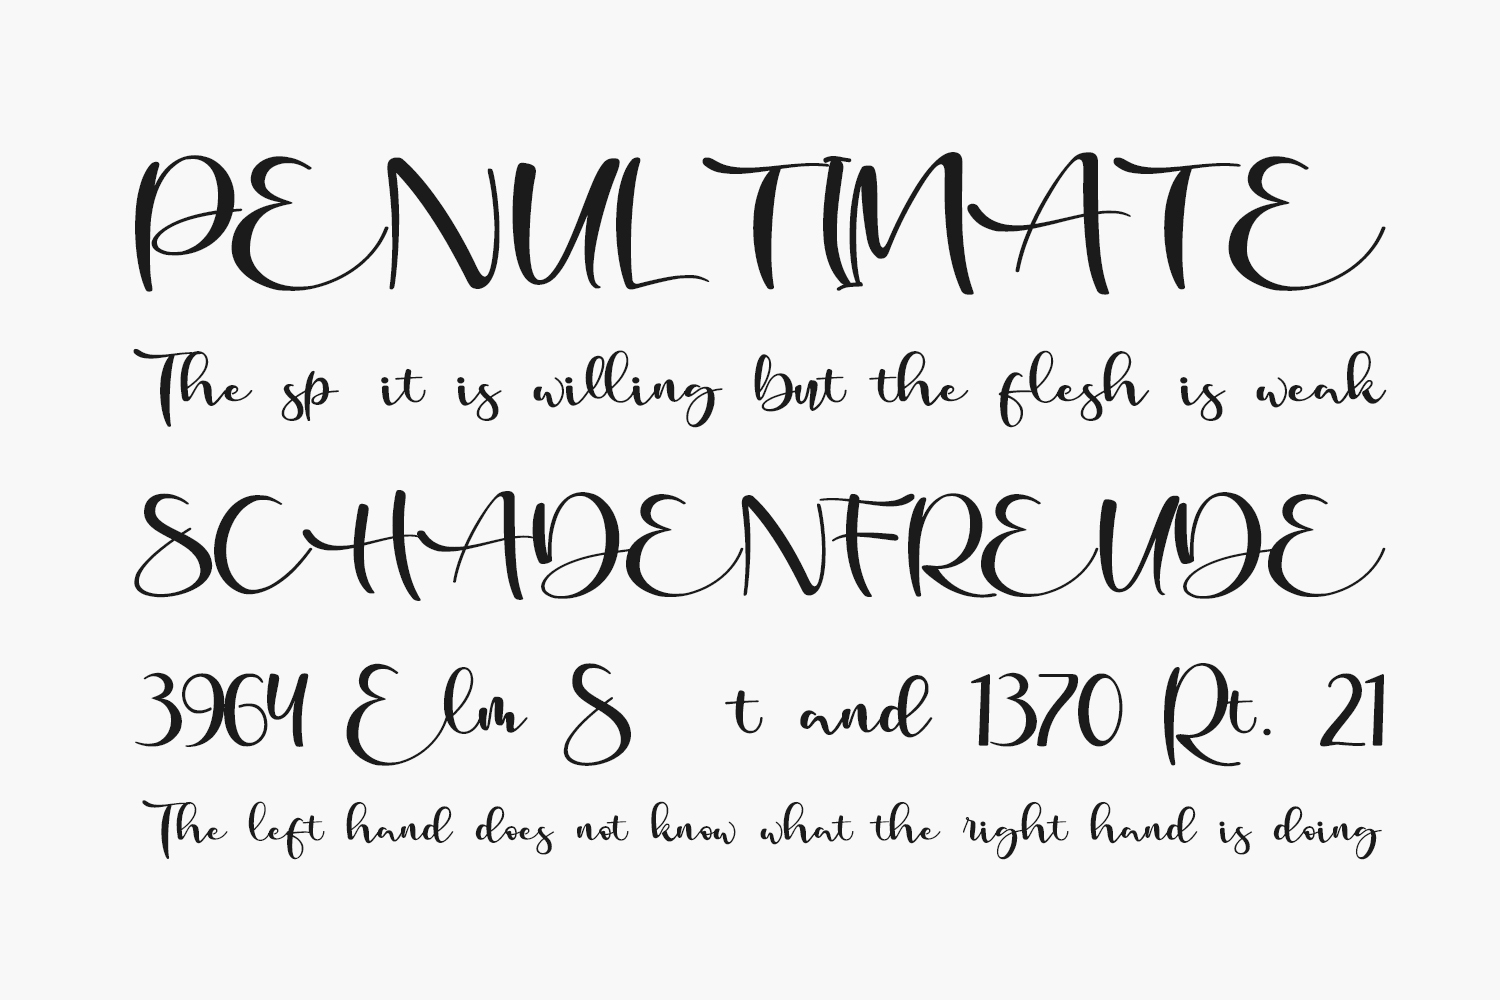 PENULTIMATE
The sp it is willing but the flesh is weak
SCHADENFREUDE
3964 Elm S t and 1370 Rt. 21
The left hand does not know what the right hand is doing